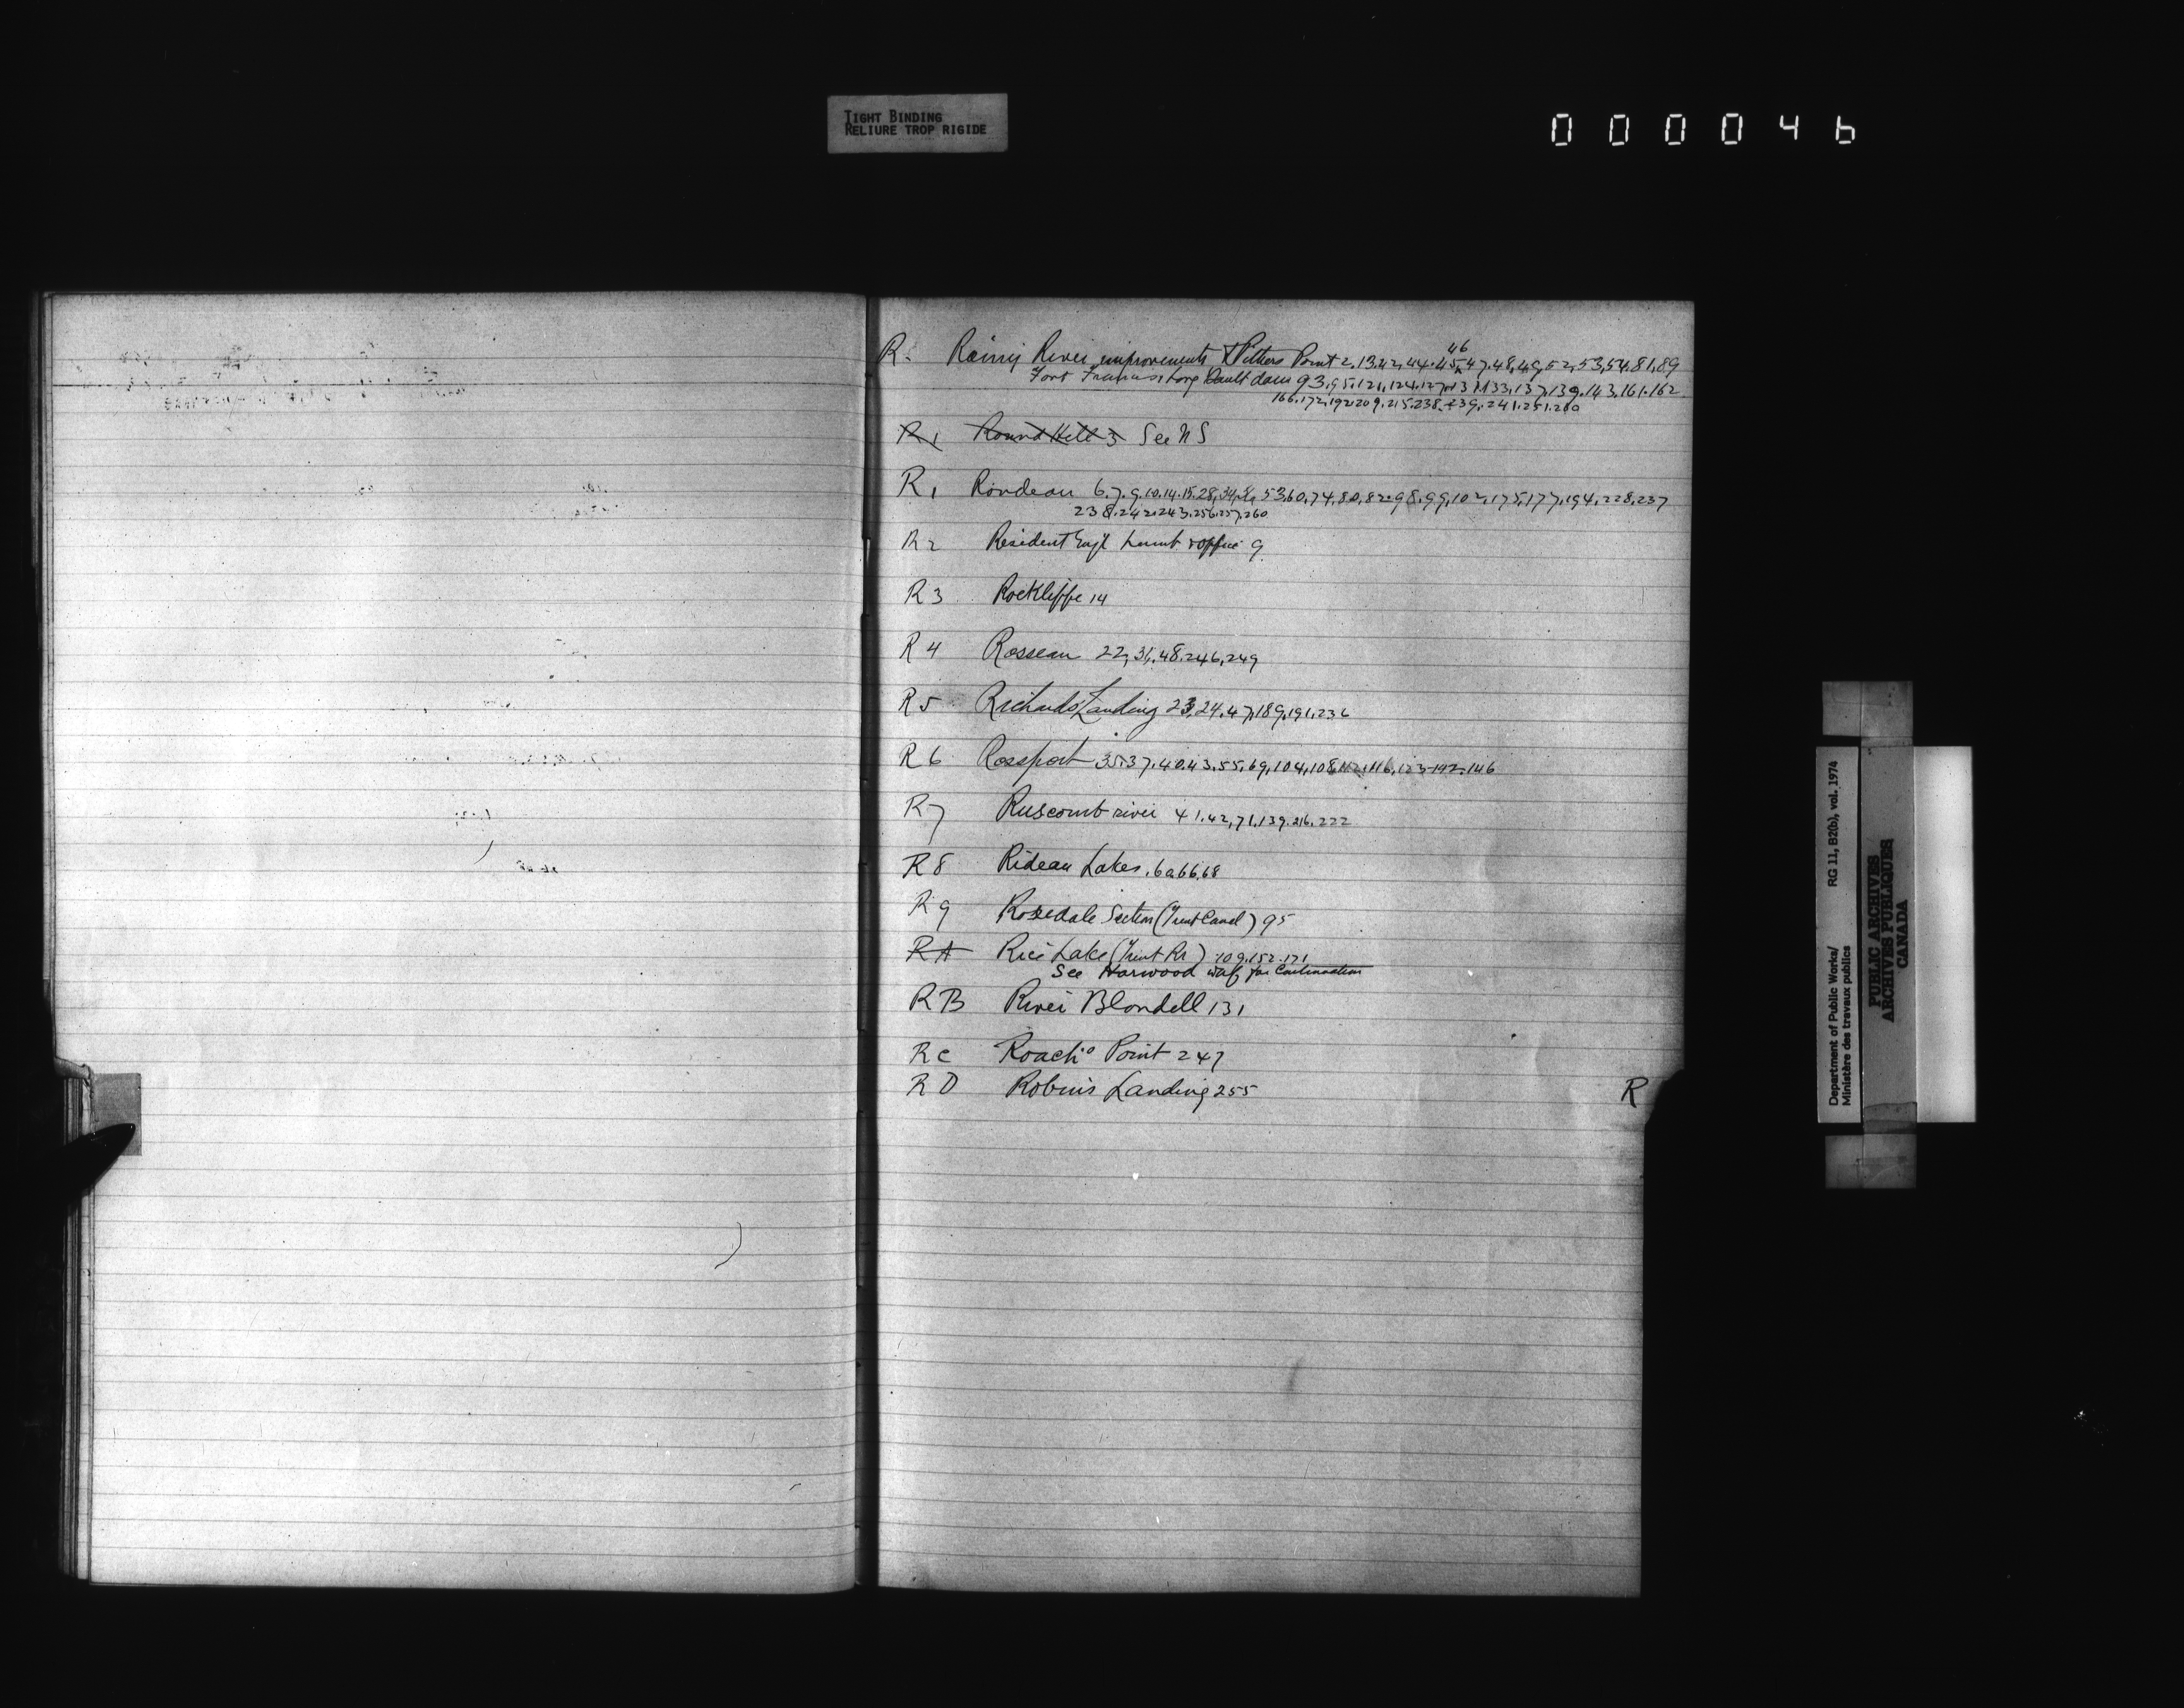 TIGHT BINDING
RELIURE TROP RIGIDE
000046
R. Rainy River improvements & Pithers Point 2.13.42.44.45,46,47.48,49,52,53,54.81.89
Fort Frances Long Sault dam 93,95.121,124.127,131.133,137,139.143.161.162
166.172.192.209.215.238.239.241.251.260
R1 Round Hill 3 See NS
R1 Rondeau 6.7.9.10.14.15.28,34, 53,60,74,80,82.98.99,102,175,177,194,228,237
238.242.243.256.257.260
R2 Resident Engr office 9
R3 Rockliffe 14
R4 Rosseau 22,31,48.246,249
R5 Richards Landing 23,24.47,189,191.236
R6 Rossport 35.37.40.43.55.69,104,108.112.116,123.142.146
R7 Ruscomb river 41.42,71.139.216.222
R8 Rideau Lakes 66,68
R9 Rosedale Section (Trent Canal) 95
RA Rice Lake (Trent Rr) 109.152.171
See Harwood wharf for Continuation
RB River Blondell 131
RC Roach's Point 247
RD Robins Landing 255
R
Department of Public Works/ RG 11, B2(b), vol. 1974
Ministère des travaux publics
PUBLIC ARCHIVES
ARCHIVES PUBLIQUES
CANADA